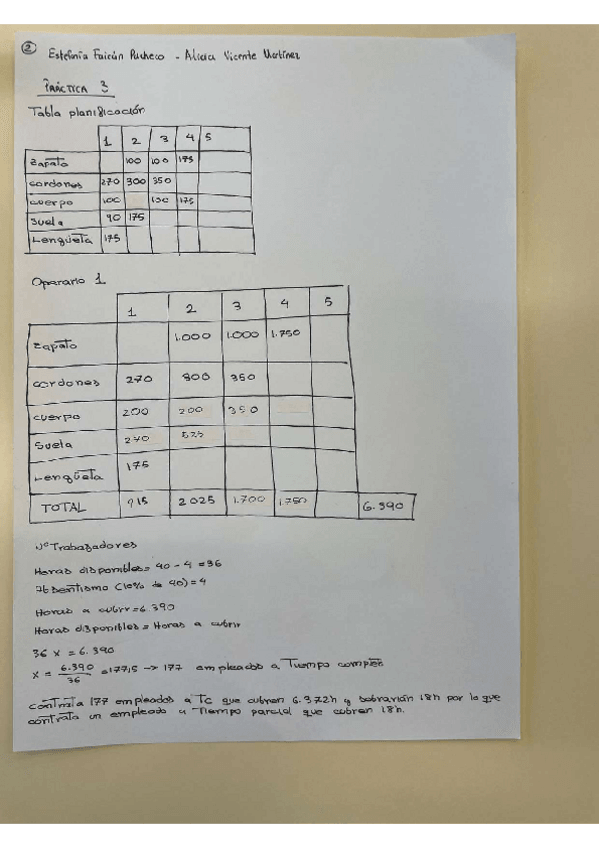 2 Estefanía Faicán Pacheco - Alicia Vicente Martínez
PRÁCTICA 3
Tabla planificación
1 2 3 4 5
Zapato 100 100 175
cordones 270 300 350
cuerpo 100 100 175
Suela 90 175
Lengüeta 175
Operario 1
1 2 3 4 5
Zapato 1.000 1.000 1.750
cordones 270 300 350
cuerpo 200 200 350
Suela 270 525
Lengüeta 175
TOTAL 915 2025 1.700 1.750 6.390
Nº Trabajadores
Horas disponibles = 40 - 4 = 36
Absentismo (10% de 40) = 4
Horas a cubrir = 6.390
Horas disponibles = Horas a cubrir
36 x = 6.390
x = 6.390 / 36 = 177,5 -> 177 empleados a Tiempo completo
contrata 177 empleados a TC que cubren 6.372h y sobrarían 18h por lo que
contrata un empleado a Tiempo parcial que cubren 18h.